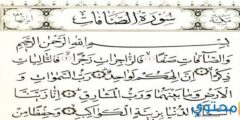 سورة الصافات
بسم الله الرحمن الرحيم
والصافات صفا فالزاجرات زجرا فالتاليات
ذكرا إن إلهكم لواحد رب السموات و
الأرض وما بينهما ورب المشارق إنا زينا
الدنيا بزينة الكواكب وحفظا من
محتوى